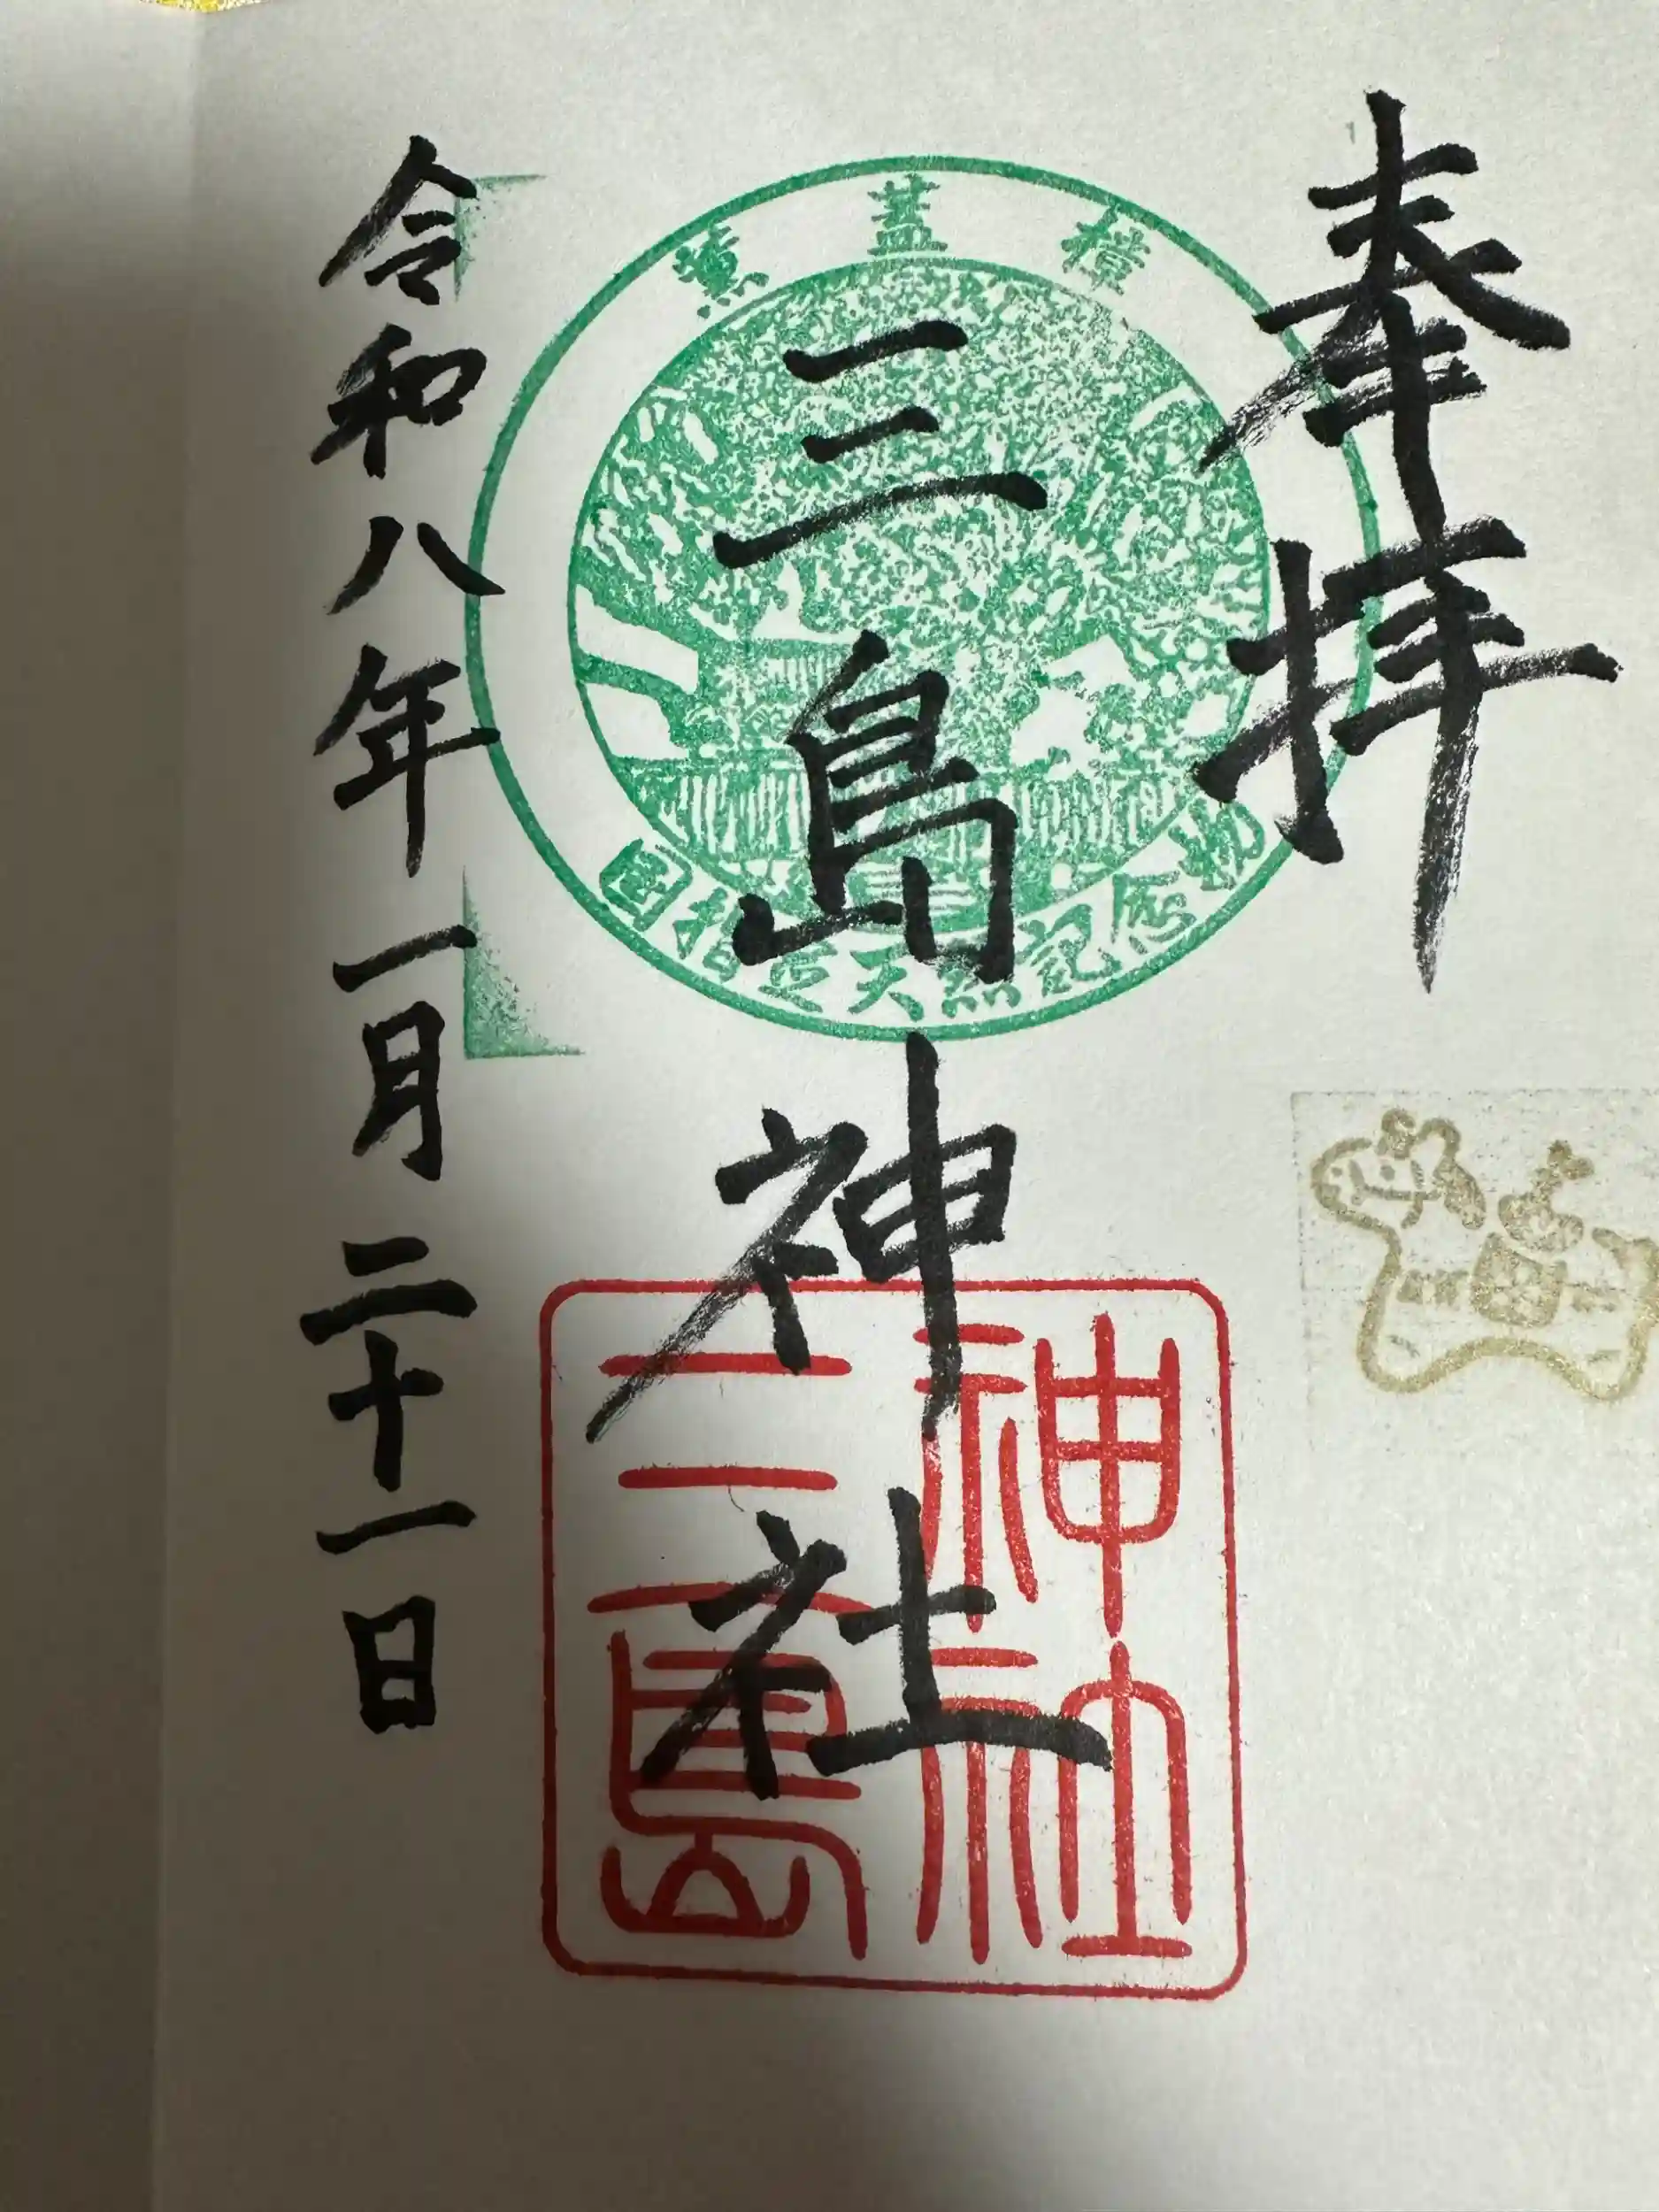 奉拝
薫蓋樟
國指定天然記念物
三島神社
三島神社
令和八年一月二十一日